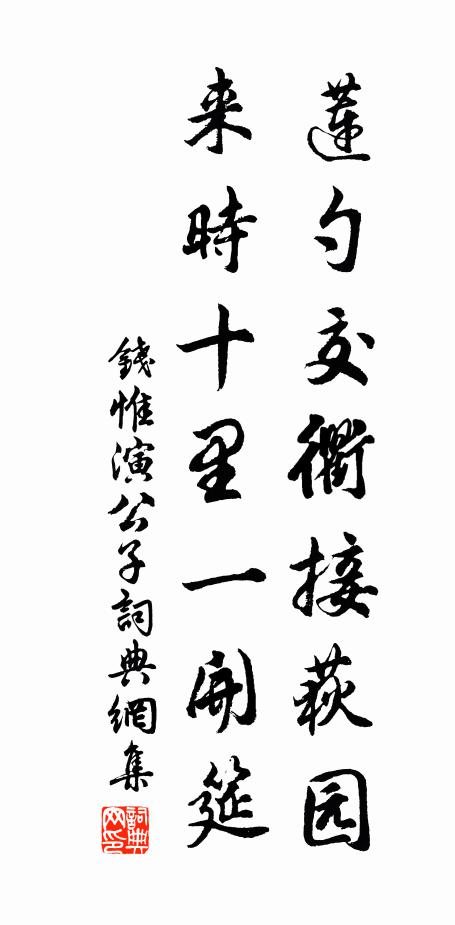 蓮勺交衢接荻园
来時十里一開筵
錢惟演公子詞典網集
詞典网印